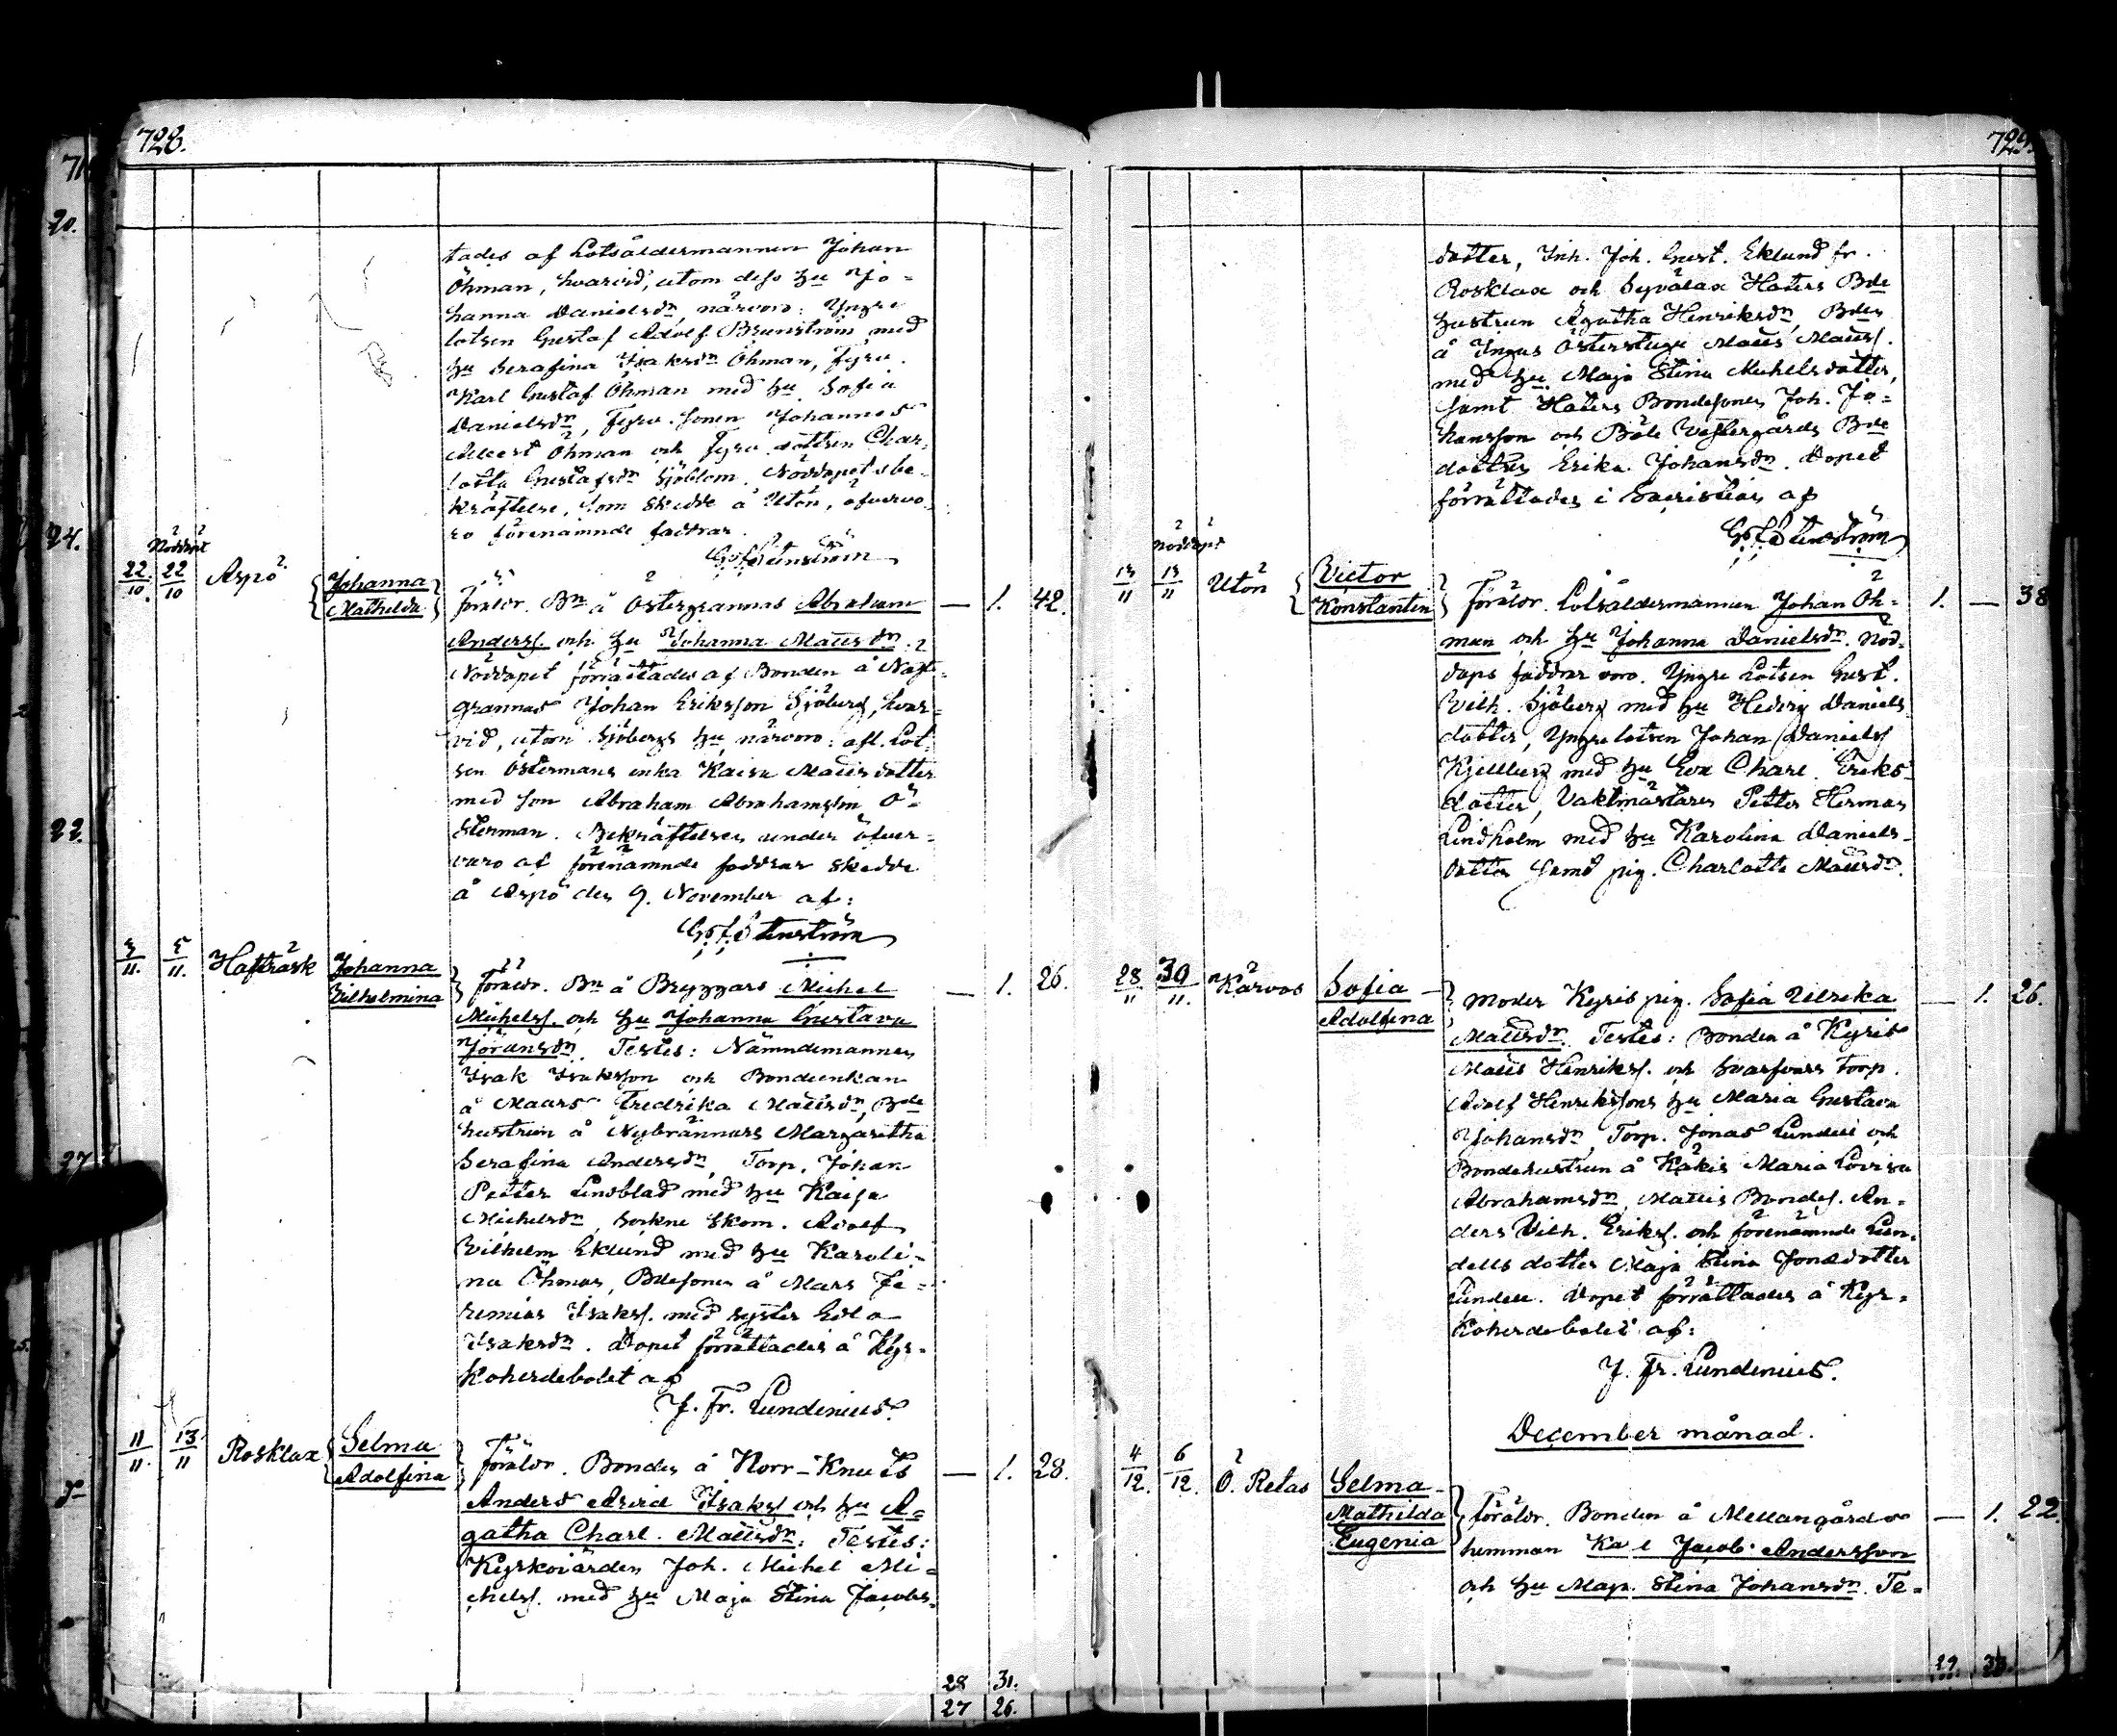 728.
tades af Lotsåldermannen Johan
Öhman, hvarvid, utom dess hu Jo-
hanna Danielsdr, närvoro: Yngre
lotsen Gustaf Adolf Brunström med
hu Serafina Isaksdr Öhman, Fyrv.
Karl Gustaf Öhman med hu Sofia
Danielsdr, Fyrv. sonen Johannes
Albert Öhman och Fyrv. dottren Char-
lotta Gustafsdr Sjöblom. Nöddopets be-
kräftelse, som skedde å Utön, öfvervo-
ro förenämnde faddrar.
G. F. Stenström
Nöddopt
22/10. 22/10 Aspö Johanna Mathilda Föräldr. Bn å Östergrannas Abraham — 1. 42.
Anderss. och hu Johanna Mattsdr.
Nöddopet förrättades af Bonden å Nast-
grannas Johan Eriksson Sjöberg, hvar-
vid, utom Sjöbergs hu, närvoro: afl. Lot-
sen Östermans enka Kaisa Mattsdotter
med son Abraham Abrahamsson Ö-
sterman. Bekräftelsen under öfver-
varo af förenämnde faddrar skedde
å Aspö den 9. November af:
G. F. Stenström
3/11. 5/11. Hafträsk Johanna Vilhelmina Föräldr. Bn å Bryggars Michel — 1. 26.
Michelss. och hu Johanna Gustava
Jöransdr. Testes: Nämndemannen
Isak Isaksson och Bondeenkan
å Maars Fredrika Mattsdr, Bde
hustrun å Nybrännars Margaretha
Serafina Andersdr, Torp. Johan
Petter Lindblad med hu Kajsa
Michelsdr, Sockne Skom. Adolf
Vilhelm Eklund med hu Karoli-
na Öhman, Bdesonen å Mars Je-
remias Isakss. med syster Edla
Isaksdr. Dopet förrättades å Kyr-
koherdebolet af
J. Fr. Lundenius.
11/11. 13/11 Rosklax Selma Adolfina Föräldr. Bonden å Norr-Knuts — 1. 28.
Anders Arvid Isakss och hu A-
gatha Charl. Mattsdr. Testes:
Kyrkovärden Joh. Michel Mi-
chelss. med hu Maja Stina Jacobs-
28 31.
27 26.
729.
dotter, Inh. Joh. Gust. Eklund fr.
Rosklax och Hatters Bde
hustrun Agatha Henriksdr, Bden
å Ingas Österstuga Matts Mattss.
med hu Maja Stina Michelsdotter,
samt Hatters Bondesonen Joh. Jo-
hansson och Böle Vestergårds Bde
dottren Erika Johansdr. Dopet
förrättades i Sacristian af
G. F. Stenström
Nöddopt
13/11 13/11 Utön Victor Konstantin Föräldr. Lotsåldermannen Johan Öh- 1. — 38
man och hu Johanna Danielsdr. Nöd-
dops faddrar voro: Yngre Lotsen Gust.
Vilh. Sjöberg med hu Hedvig Daniels-
dotter, Yngre lotsen Johan Danielss
Kjellberg med hu Eva Charl. Eriks-
dotter, Vaktmästaren Petter Herman
Lindholm med hu Karolina Daniels-
dotter samt pig. Charlotta Mattsdr.
28/11 30/11. Kårvas Sofia Adolfina Moder Kyris pig. Sofia Ulrika — 1. 26.
Mattsdr. Testes: Bonden å Kyris
Matts Henrikss. och Svarfvars torp.
Adolf Henrikssons hu Maria Gustava
Johansdr, Torp. Jonas Lundell och
Bondehustrun å Kakis Maria Lovisa
Abrahamsdr, Mattis Bondes. An-
ders Vilh. Erikss. och förenämnde Lun-
dells dotter Maja Stina Jonsdotter
Lundell. Dopet förrättades å Kyr-
koherdebolet af:
J. Fr. Lundenius.
December månad.
4/12. 6/12. Ö. Retas Selma Mathilda Eugenia Föräldr. Bonden å Mellangårds — 1. 22.
hemman Karl Jacob Andersson
och hu Maja Stina Johansdr. Te-
29. 33.